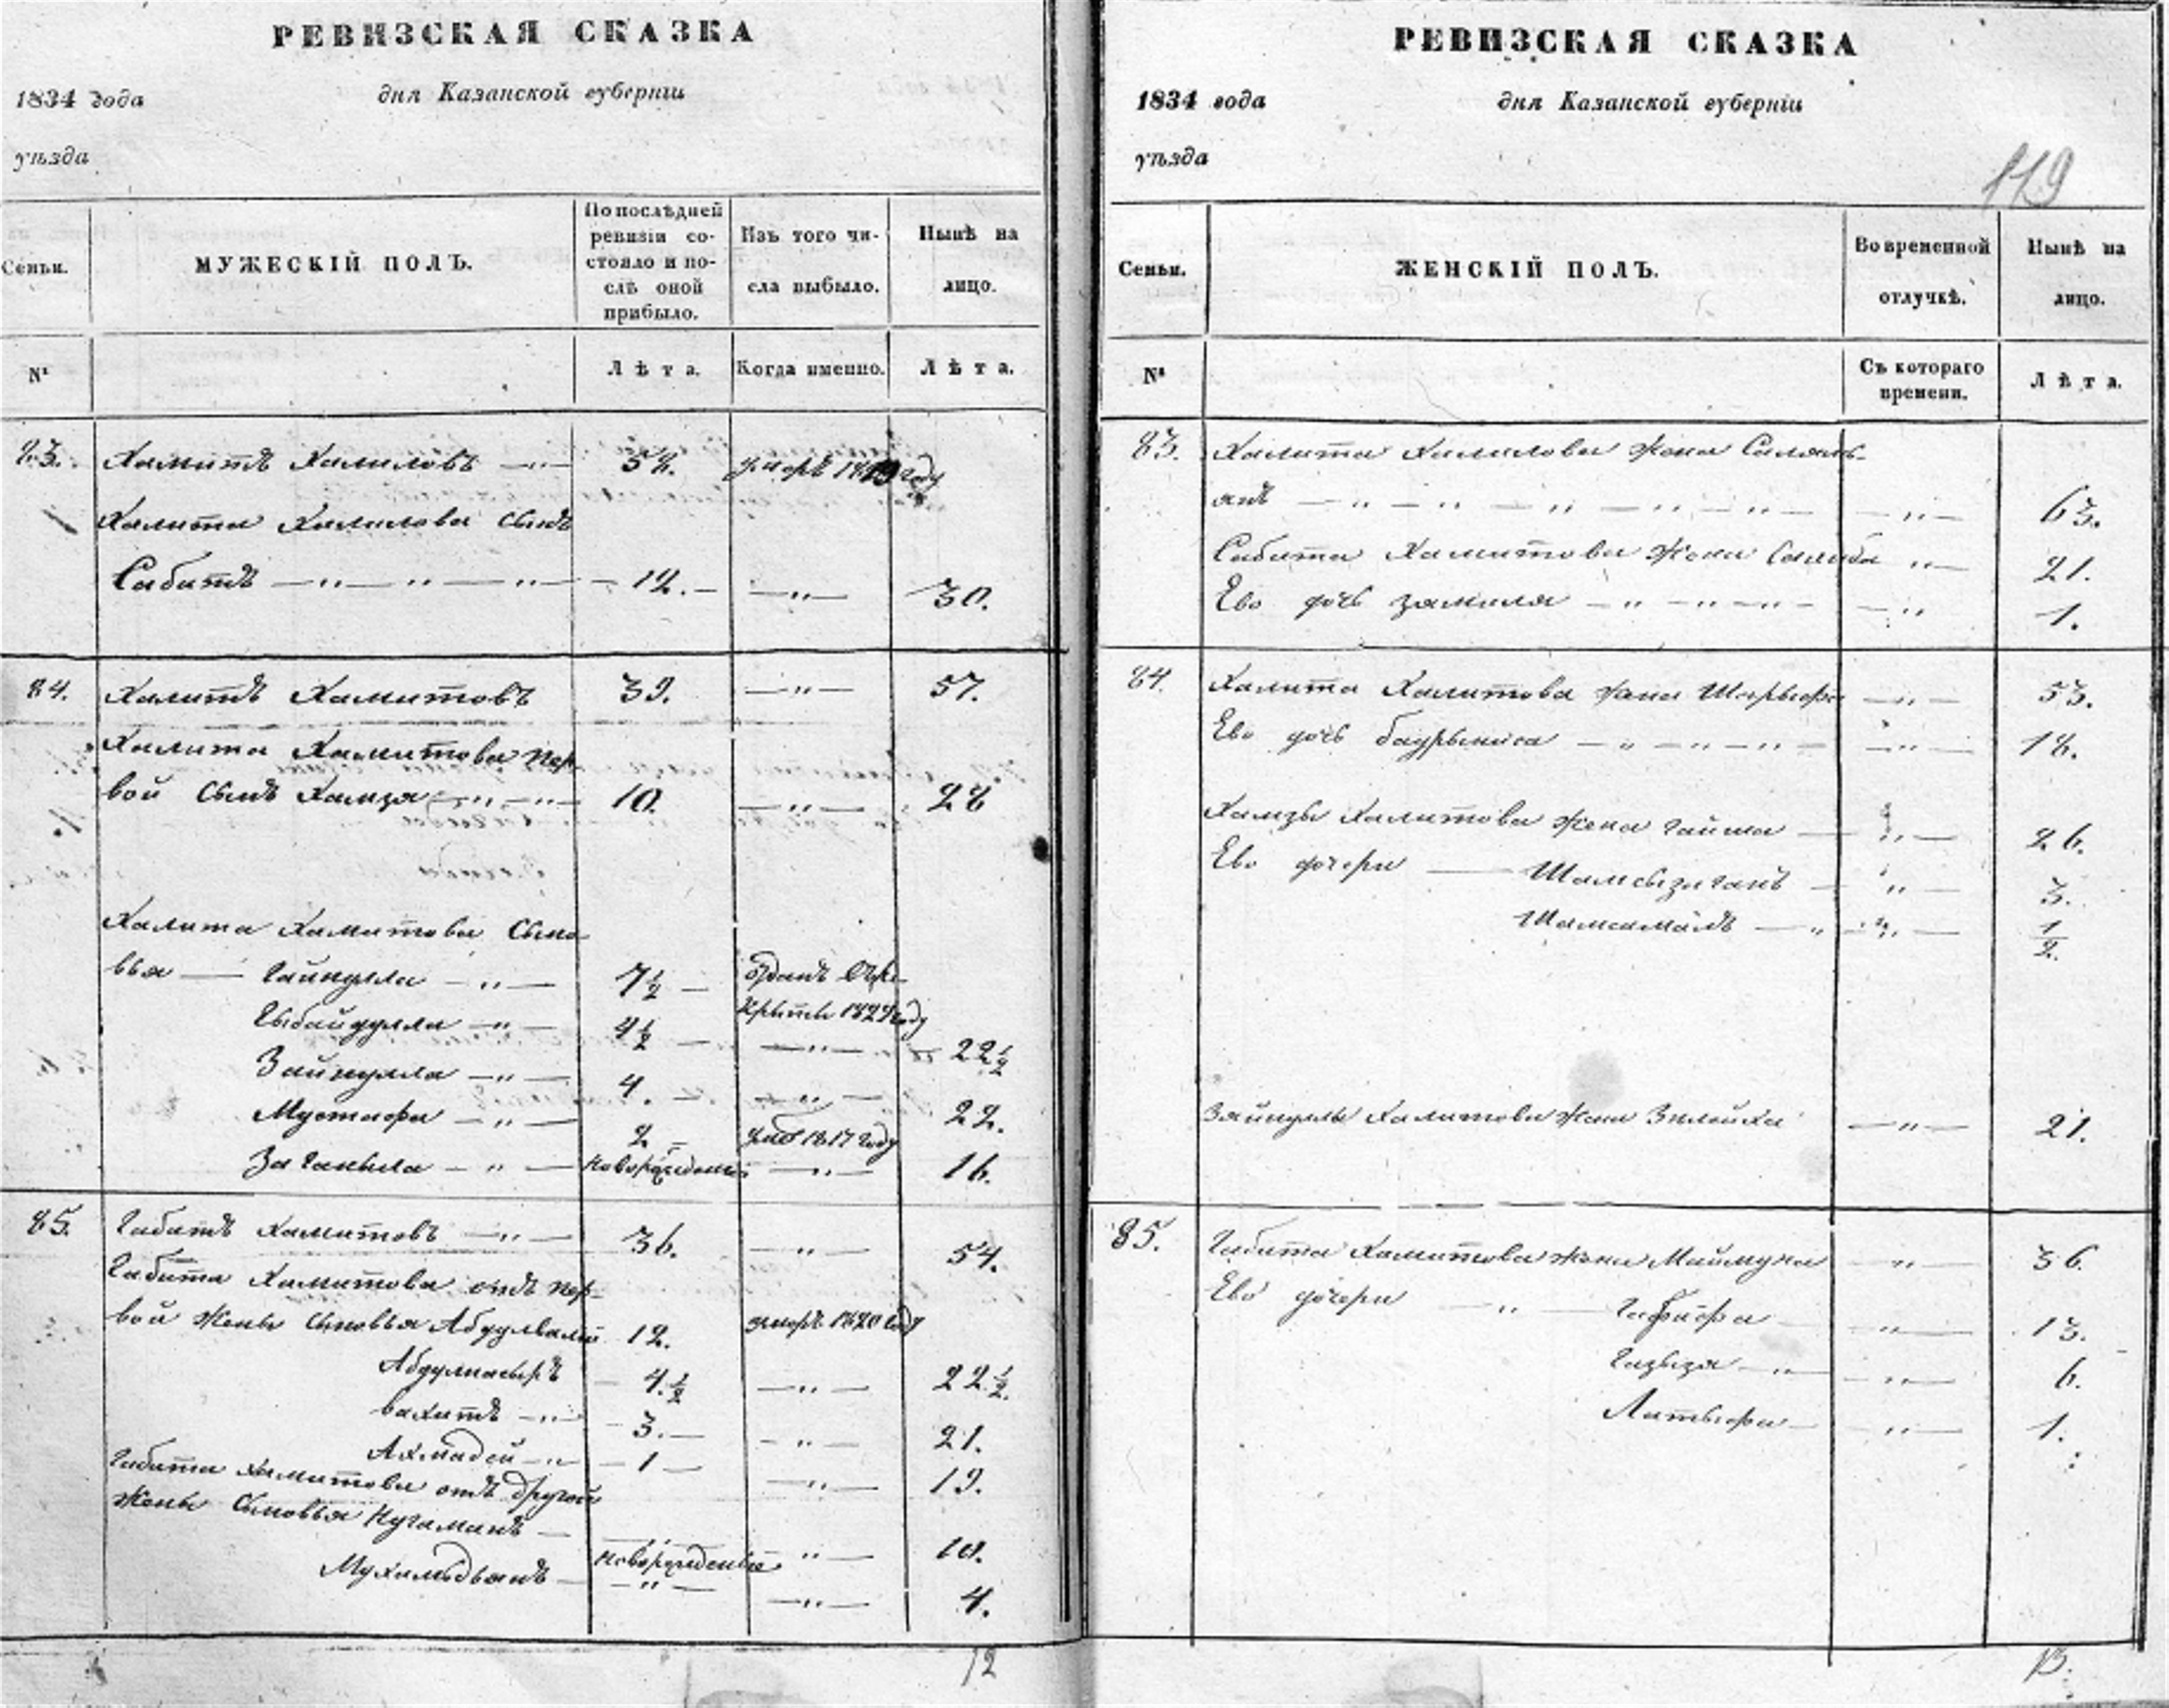 РЕВИЗСКАЯ СКАЗКА
1834 года дня Казанской губерніи
уѣзда
Семьи.
МУЖЕСКІЙ ПОЛЪ.
По послѣдней ревизіи состояло и послѣ оной прибыло.
Изъ того числа выбыло.
Нынѣ на лицо.
№
Лѣта.
Когда именно.
Лѣта.
83. Хамитъ Халиловъ 58. умеръ 1819 году
Хамита Халилова сынъ
Сабитъ 12. 30.
84. Халитъ Хамитовъ 39. 57.
Халита Хамитова пер-
вой сынъ Хамзя 10. 28
Халита Хамитова сыно
вья Гайнулла 7½ отданъ
1827 году
Гыбайдулла 4½ 22½
Зайнулла 4. 22.
Мустафа 2 умеръ 1817 году
Заганыла новорожденны 16.
85. Габитъ Хамитовъ 36. 54.
Габита Хамитова отъ пер-
вой жены сыновья Абдулвали 12. умеръ 1820 году
Абдулнасыръ 4.½ 22½.
Вахитъ 3. 21.
Ахмадей 1 19.
Габита Хамитова отъ другой
жены сыновья Нугаманъ 10.
новорожденные
Мухамедьянъ 4.
12
РЕВИЗСКАЯ СКАЗКА
1834 года дня Казанской губерніи
уѣзда
119
Семьи.
ЖЕНСКІЙ ПОЛЪ.
Во временной отлучкѣ.
Нынѣ на лицо.
№
Съ котораго времени.
Лѣта.
83. Хамита Халилова жена
63.
Сабита Хамитова жена Салиба 21.
Ево дочь Замиля 1.
84. Халита Хамитова жена Шарыфа 53.
Ево дочь Бадрыниса 18.
Хамзы Халитова жена Гайша 26.
Ево дочери Шамсызиганъ 3.
Шамсамалъ ½.
Зайнуллы Халитова жена Зюлейха 21.
85. Габита Хамитова жена Маймуна 36.
Ево дочери Гафифа 13.
Газыза 6.
Латыфа 1.
13.